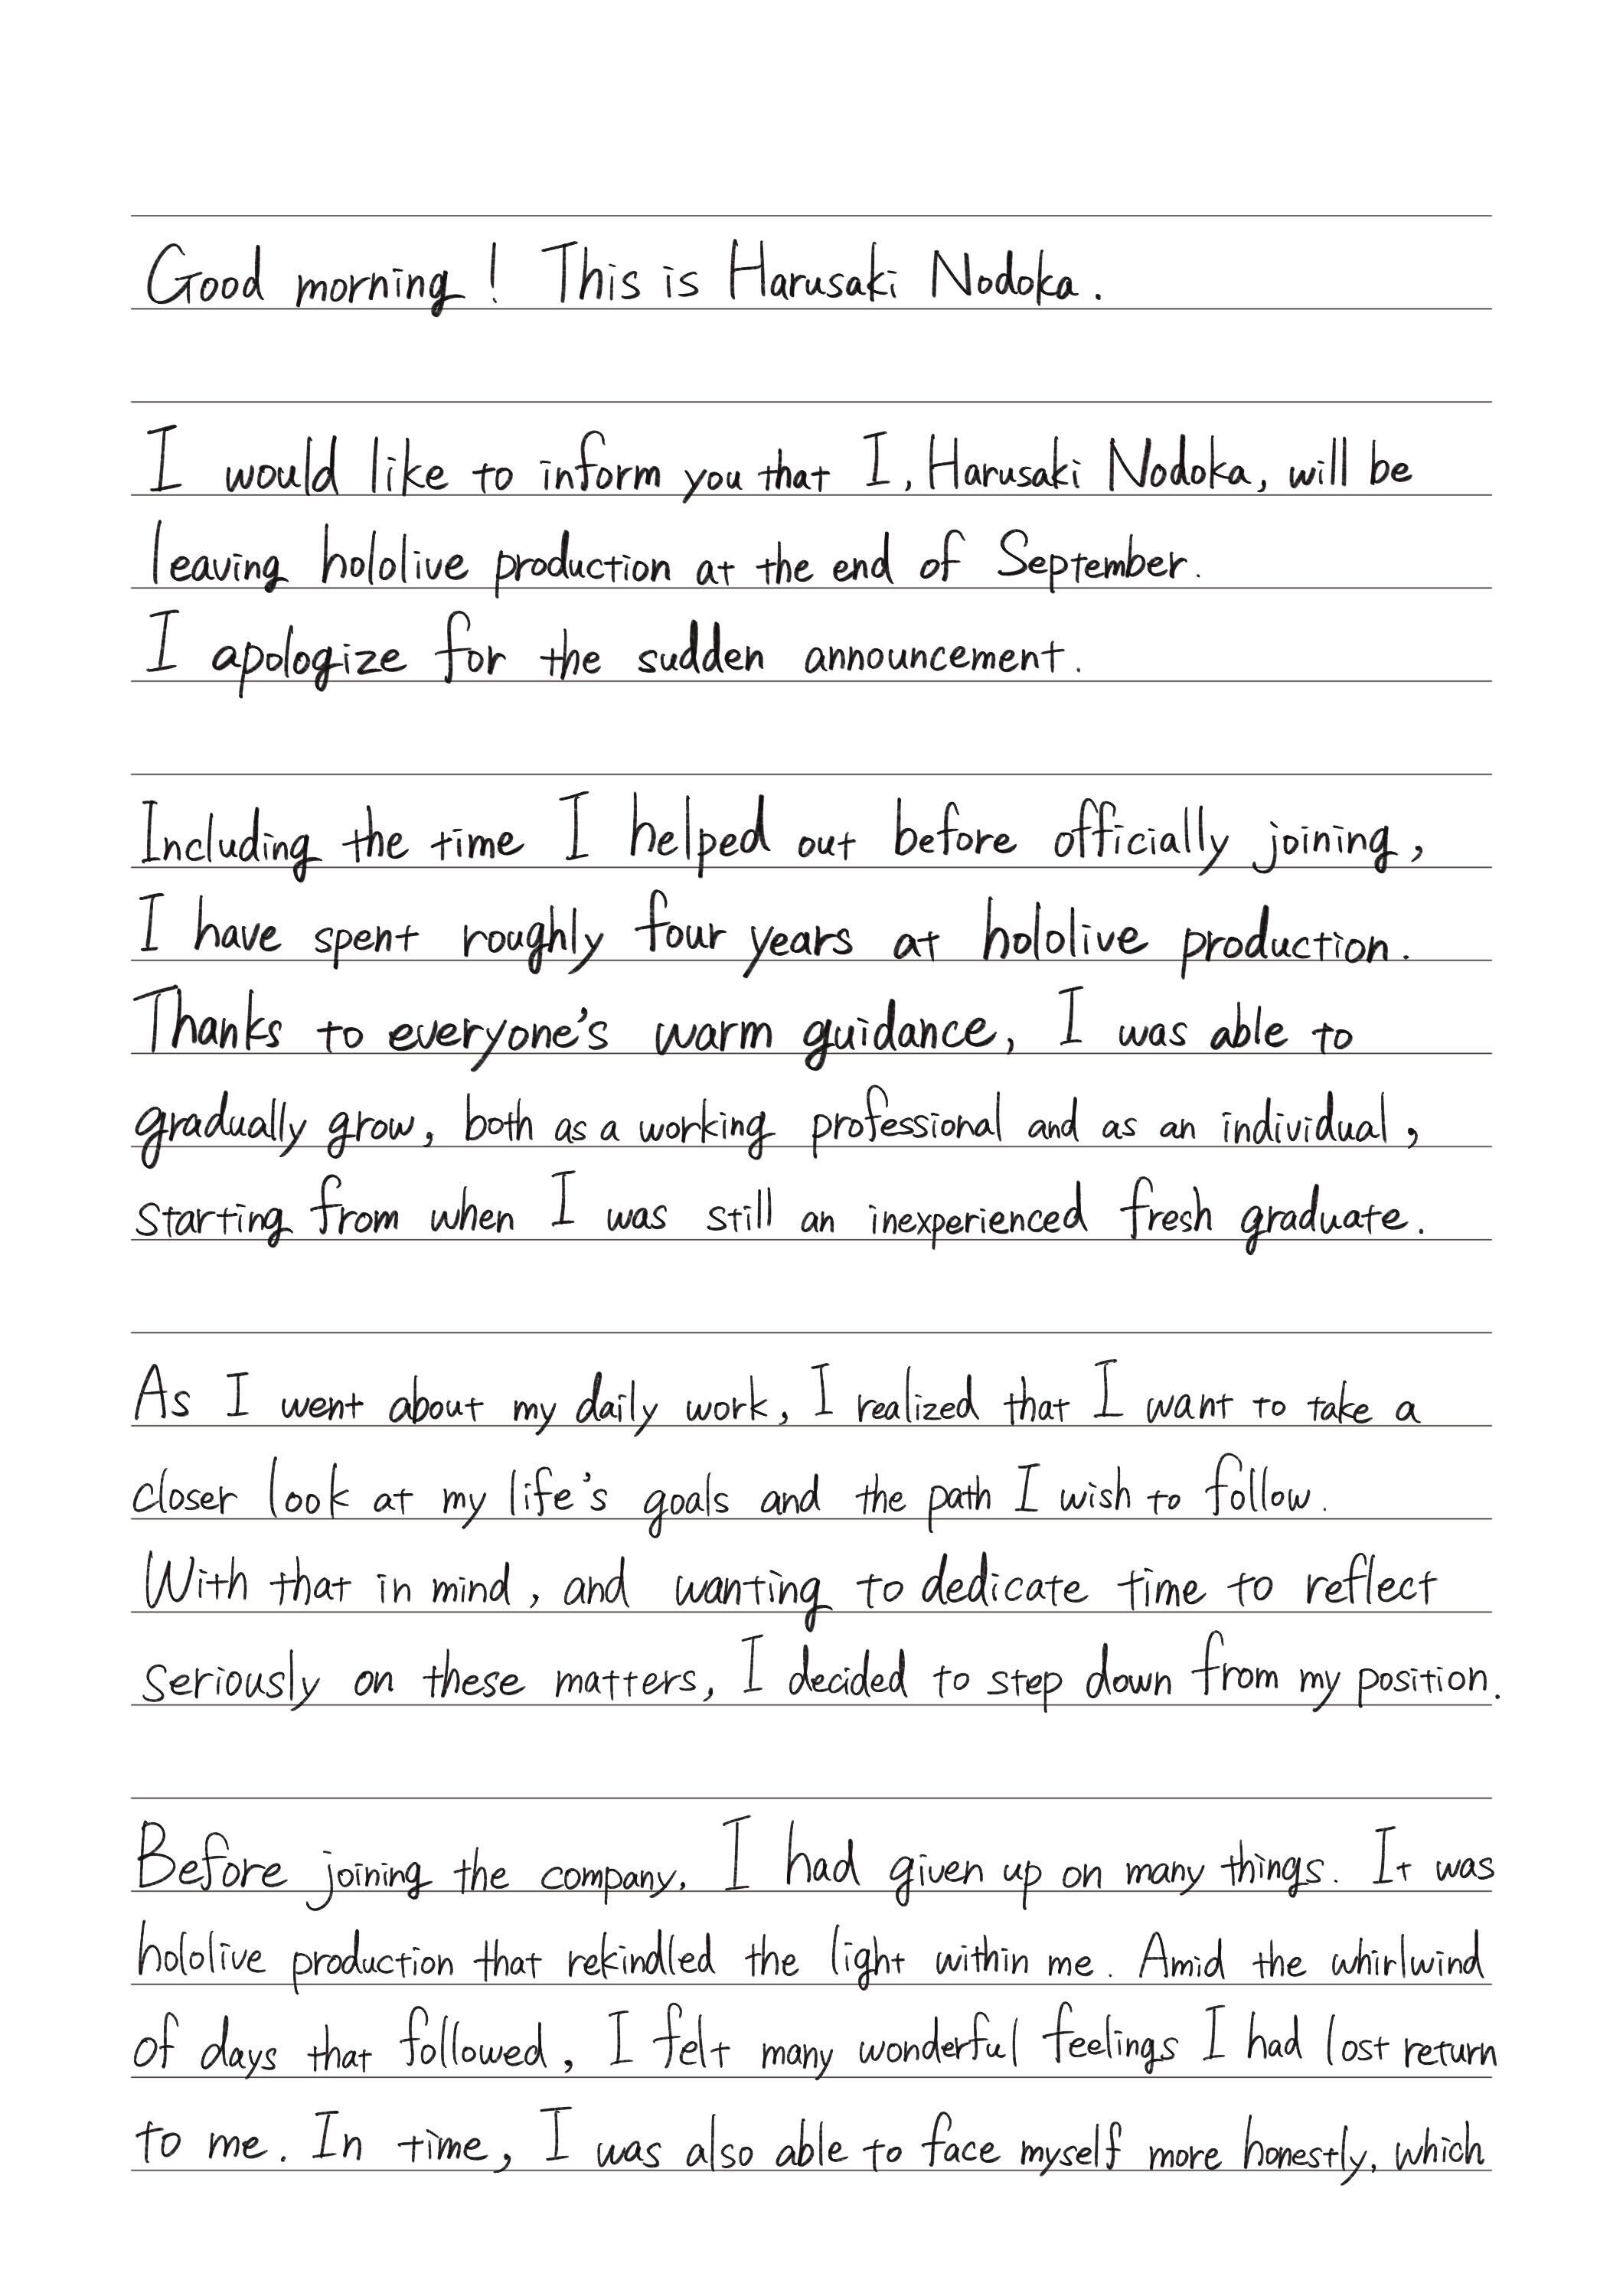 Good morning! This is Harusaki Nodoka.
I would like to inform you that I, Harusaki Nodoka, will be
leaving hololive production at the end of September.
I apologize for the sudden announcement.
Including the time I helped out before officially joining,
I have spent roughly four years at hololive production.
Thanks to everyone's warm guidance, I was able to
gradually grow, both as a working professional and as an individual,
starting from when I was still an inexperienced fresh graduate.
As I went about my daily work, I realized that I want to take a
closer look at my life's goals and the path I wish to follow.
With that in mind, and wanting to dedicate time to reflect
seriously on these matters, I decided to step down from my position.
Before joining the company, I had given up on many things. It was
hololive production that rekindled the light within me. Amid the whirlwind
of days that followed, I felt many wonderful feelings I had lost return
to me. In time, I was also able to face myself more honestly, which